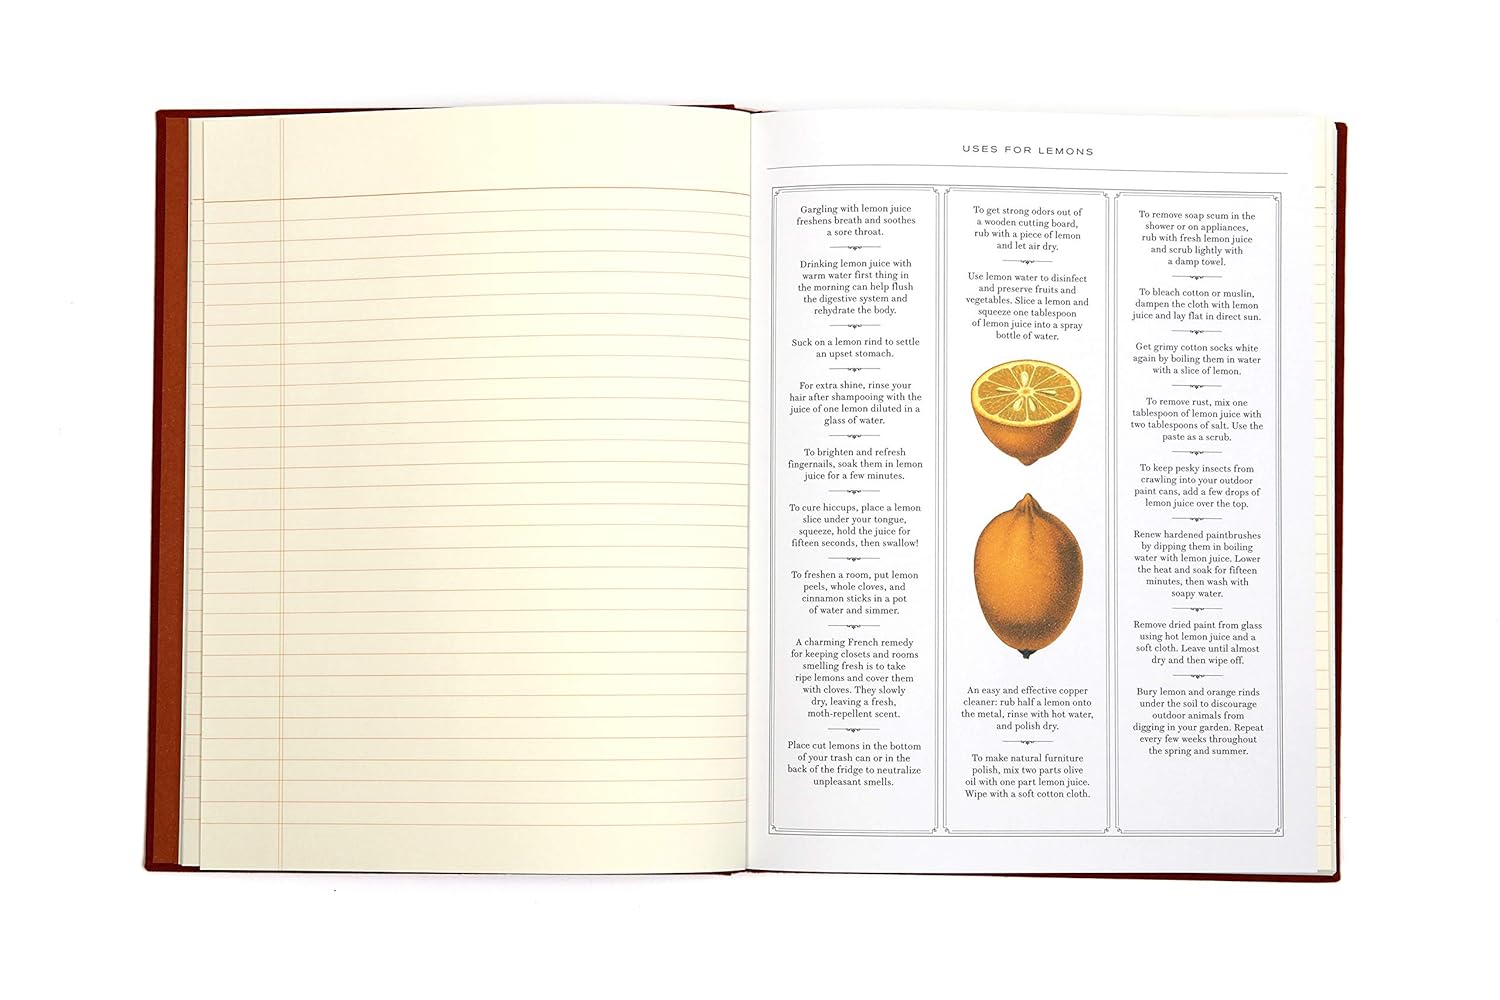 USES FOR LEMONS
Gargling with lemon juice
freshens breath and soothes
a sore throat.
Drinking lemon juice with
warm water first thing in
the morning can help flush
the digestive system and
rehydrate the body.
Suck on a lemon rind to settle
an upset stomach.
For extra shine, rinse your
hair after shampooing with the
juice of one lemon diluted in a
glass of water.
To brighten and refresh
fingernails, soak them in lemon
juice for a few minutes.
To cure hiccups, place a lemon
slice under your tongue,
squeeze, hold the juice for
fifteen seconds, then swallow!
To freshen a room, put lemon
peels, whole cloves, and
cinnamon sticks in a pot
of water and simmer.
A charming French remedy
for keeping closets and rooms
smelling fresh is to take
ripe lemons and cover them
with cloves. They slowly
dry, leaving a fresh,
moth-repellent scent.
Place cut lemons in the bottom
of your trash can or in the
back of the fridge to neutralize
unpleasant smells.
To get strong odors out of
a wooden cutting board,
rub with a piece of lemon
and let air dry.
Use lemon water to disinfect
and preserve fruits and
vegetables. Slice a lemon and
squeeze one tablespoon
of lemon juice into a spray
bottle of water.
An easy and effective copper
cleaner: rub half a lemon onto
the metal, rinse with hot water,
and polish dry.
To make natural furniture
polish, mix two parts olive
oil with one part lemon juice.
Wipe with a soft cotton cloth.
To remove soap scum in the
shower or on appliances,
rub with fresh lemon juice
and scrub lightly with
a damp towel.
To bleach cotton or muslin,
dampen the cloth with lemon
juice and lay flat in direct sun.
Get grimy cotton socks white
again by boiling them in water
with a slice of lemon.
To remove rust, mix one
tablespoon of lemon juice with
two tablespoons of salt. Use the
paste as a scrub.
To keep pesky insects from
crawling into your outdoor
paint cans, add a few drops of
lemon juice over the top.
Renew hardened paintbrushes
by dipping them in boiling
water with lemon juice. Lower
the heat and soak for fifteen
minutes, then wash with
soapy water.
Remove dried paint from glass
using hot lemon juice and a
soft cloth. Leave until almost
dry and then wipe off.
Bury lemon and orange rinds
under the soil to discourage
outdoor animals from
digging in your garden. Repeat
every few weeks throughout
the spring and summer.